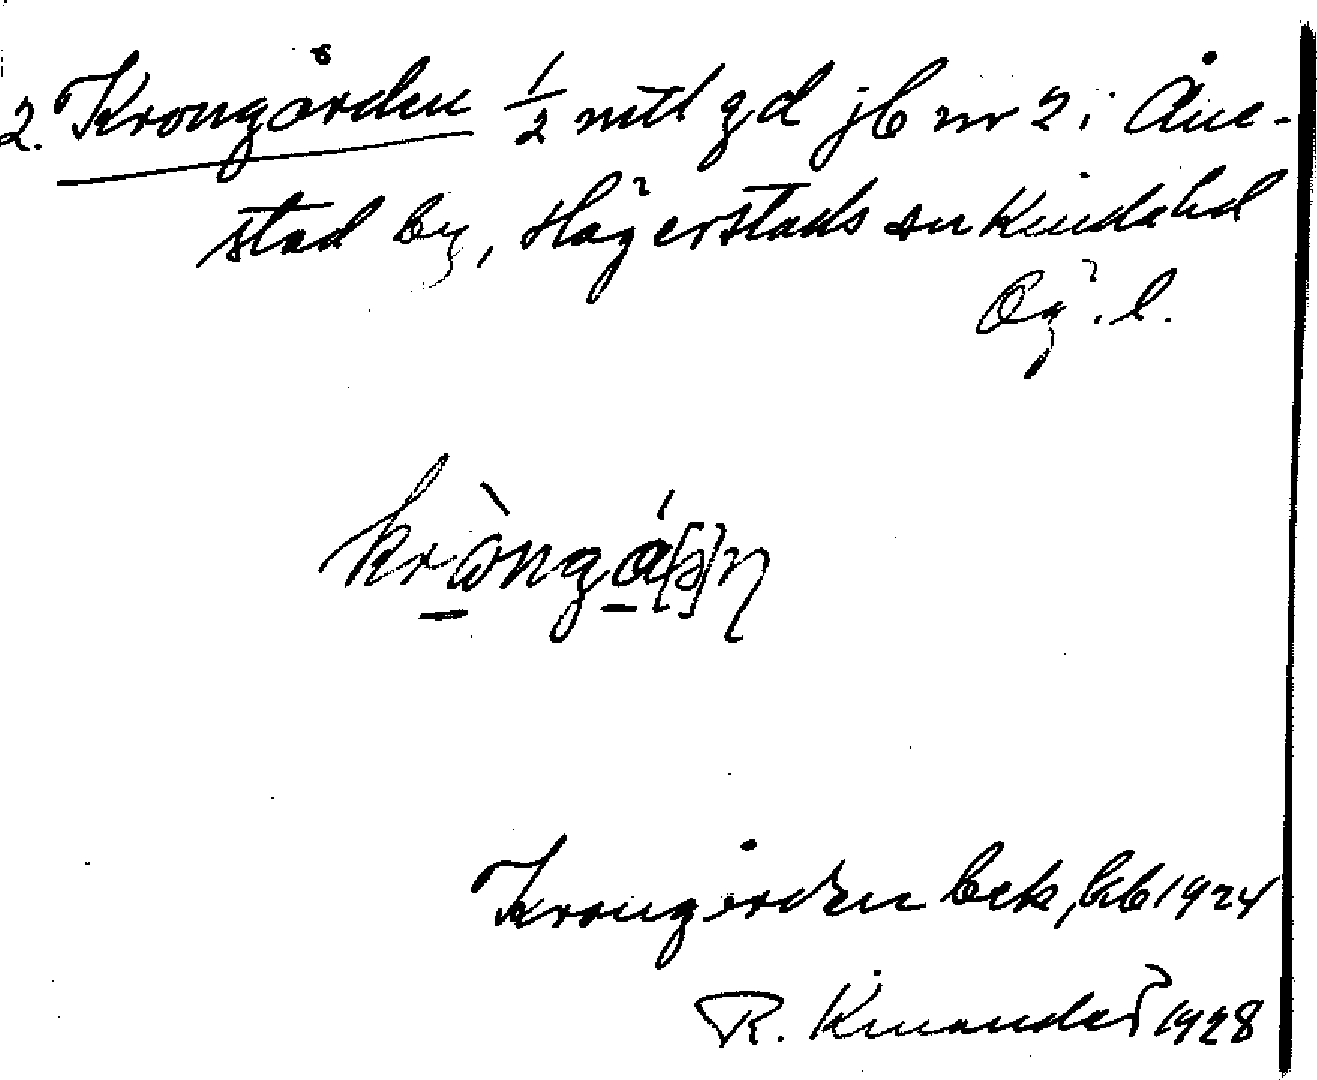 2. Krongården 1/2 mtl gd jb nr 2 i Åne-
stad by, Hägerstads sn Kinda hd
Ög. l.
kròngá[ə]n
Krongården bek, kb 1924
R. Kinander 1928